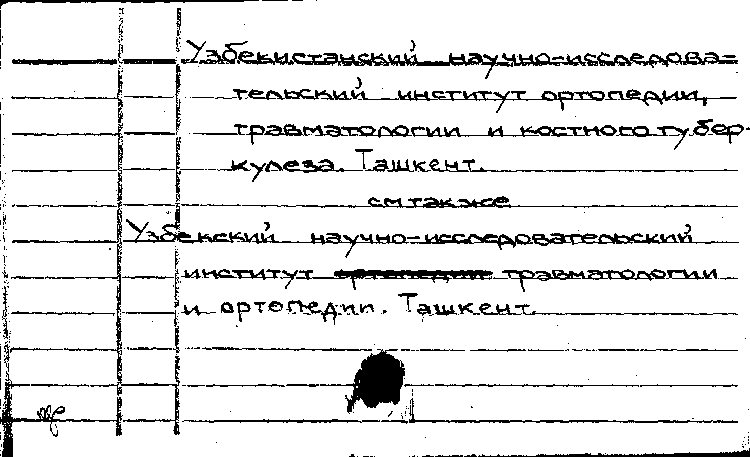 Узбекистанский научно-исследова-
тельский институт ортопедии,
травматологии и костного тубер-
кулеза. Ташкент.
см также
Узбекский научно-исследовательский
институт ортопедии травматологии
и ортопедии. Ташкент.